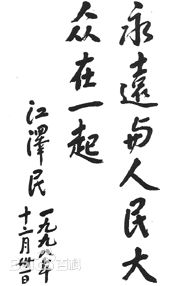 永遠与人民大
众在一起
江澤民
一九九年
十二月日